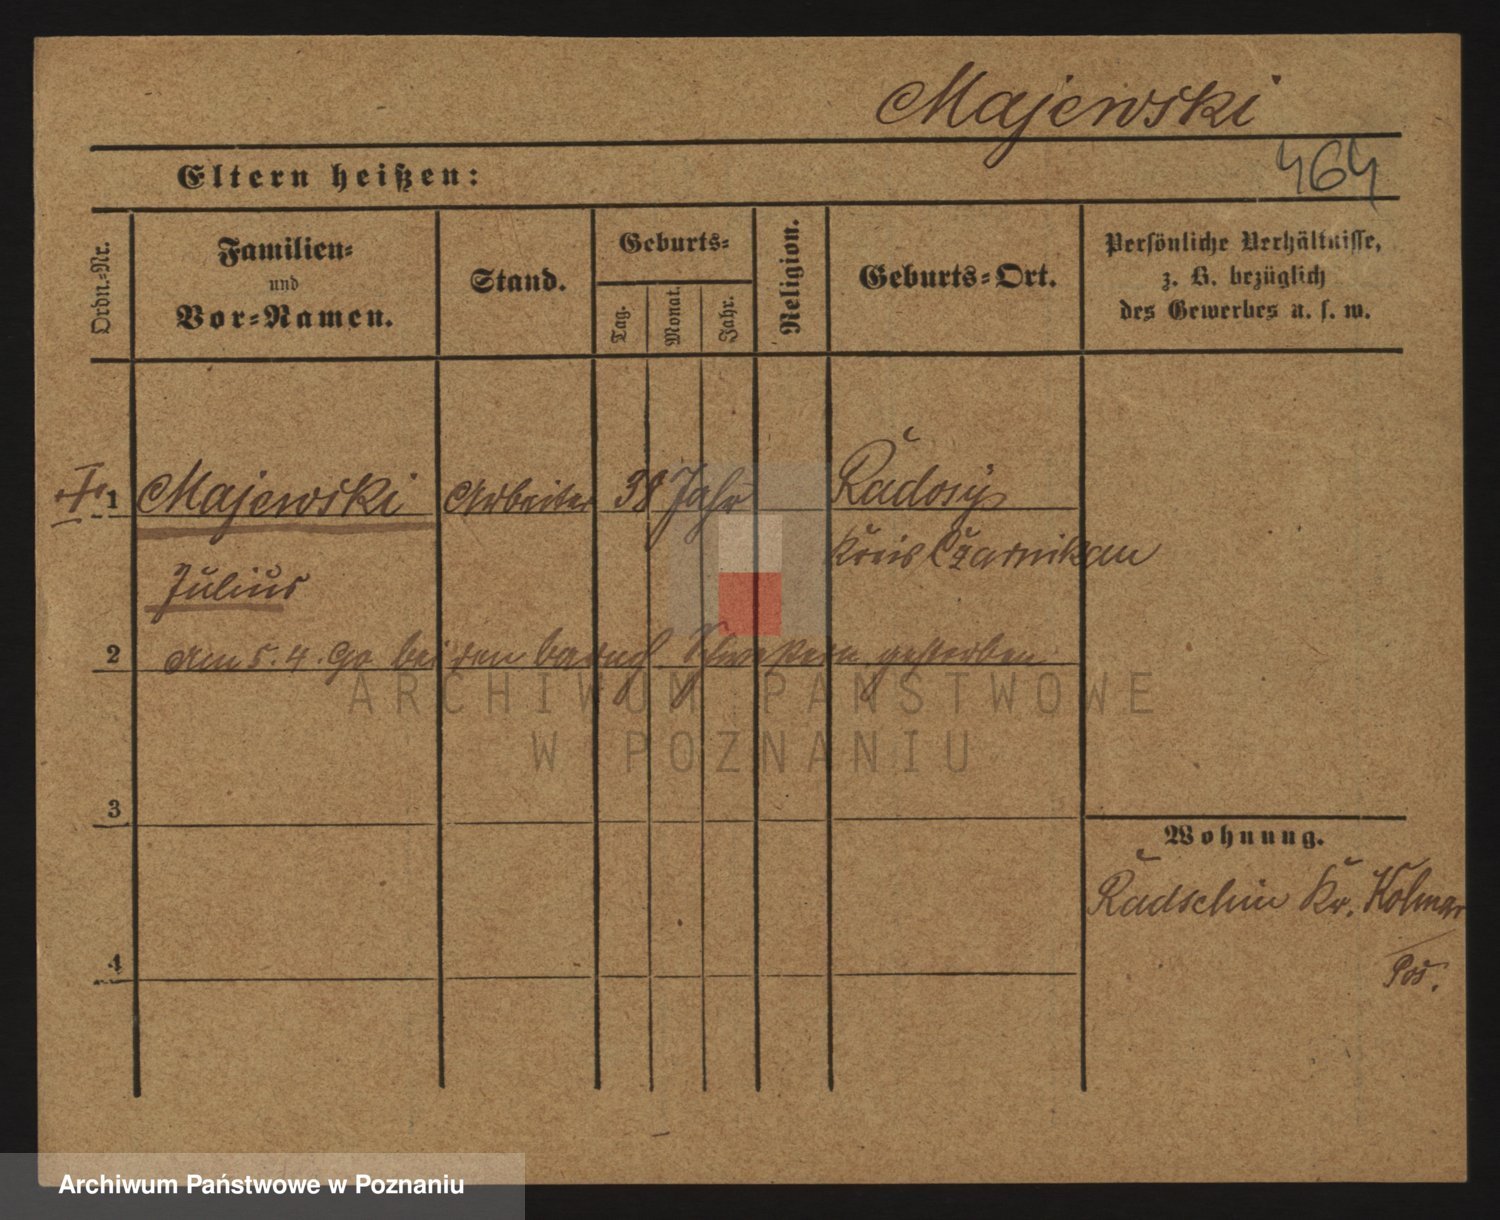 Majewski
464
Eltern heißen:
Ordn.-Nr.
Familien-
und
Vor-Namen.
Stand.
Geburts-
Tag.
Monat.
Jahr.
Religion.
Geburts-Ort.
Persönliche Verhältnisse,
z. B. bezüglich
des Gewerbes u. s. w.
1 Majewski Arbeiter 38 Jahr Radosýs
Kreis Czarnikau
Julius
2 Am 5. 4. 90 bei den barmh Schwestern gestorben
3
Wohnung.
Radschin Kr. Kolmar
Pos.
4
ARCHIWUM PAŃSTWOWE
W POZNANIU
Archiwum Państwowe w Poznaniu